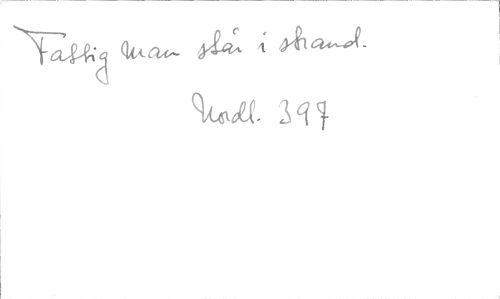 Fattig man står i strand.
Nordl. 397